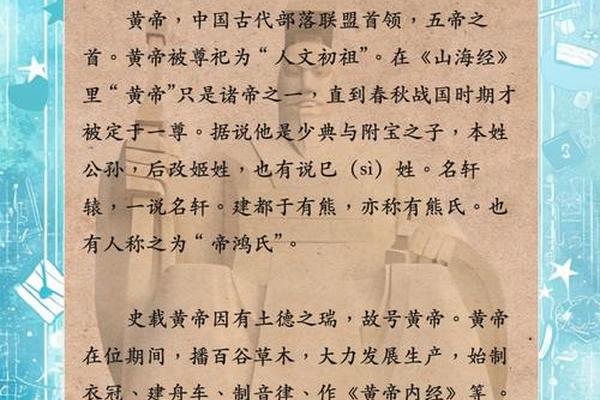 黄帝，中国古代部落联盟首领，五帝之
首。黄帝被尊祀为“人文初祖”。在《山海经》
里“黄帝”只是诸帝之一，直到春秋战国时期才
被定于一尊。据说他是少典与附宝之子，本姓
公孙，后改姬姓，也有说巳（sì）姓。名轩
辕，一说名轩。建都于有熊，亦称有熊氏。也
有人称之为“帝鸿氏”。
史载黄帝因有土德之瑞，故号黄帝。黄帝
在位期间，播百谷草木，大力发展生产，始制
衣冠、建舟车、制音律、作《黄帝内经》等。